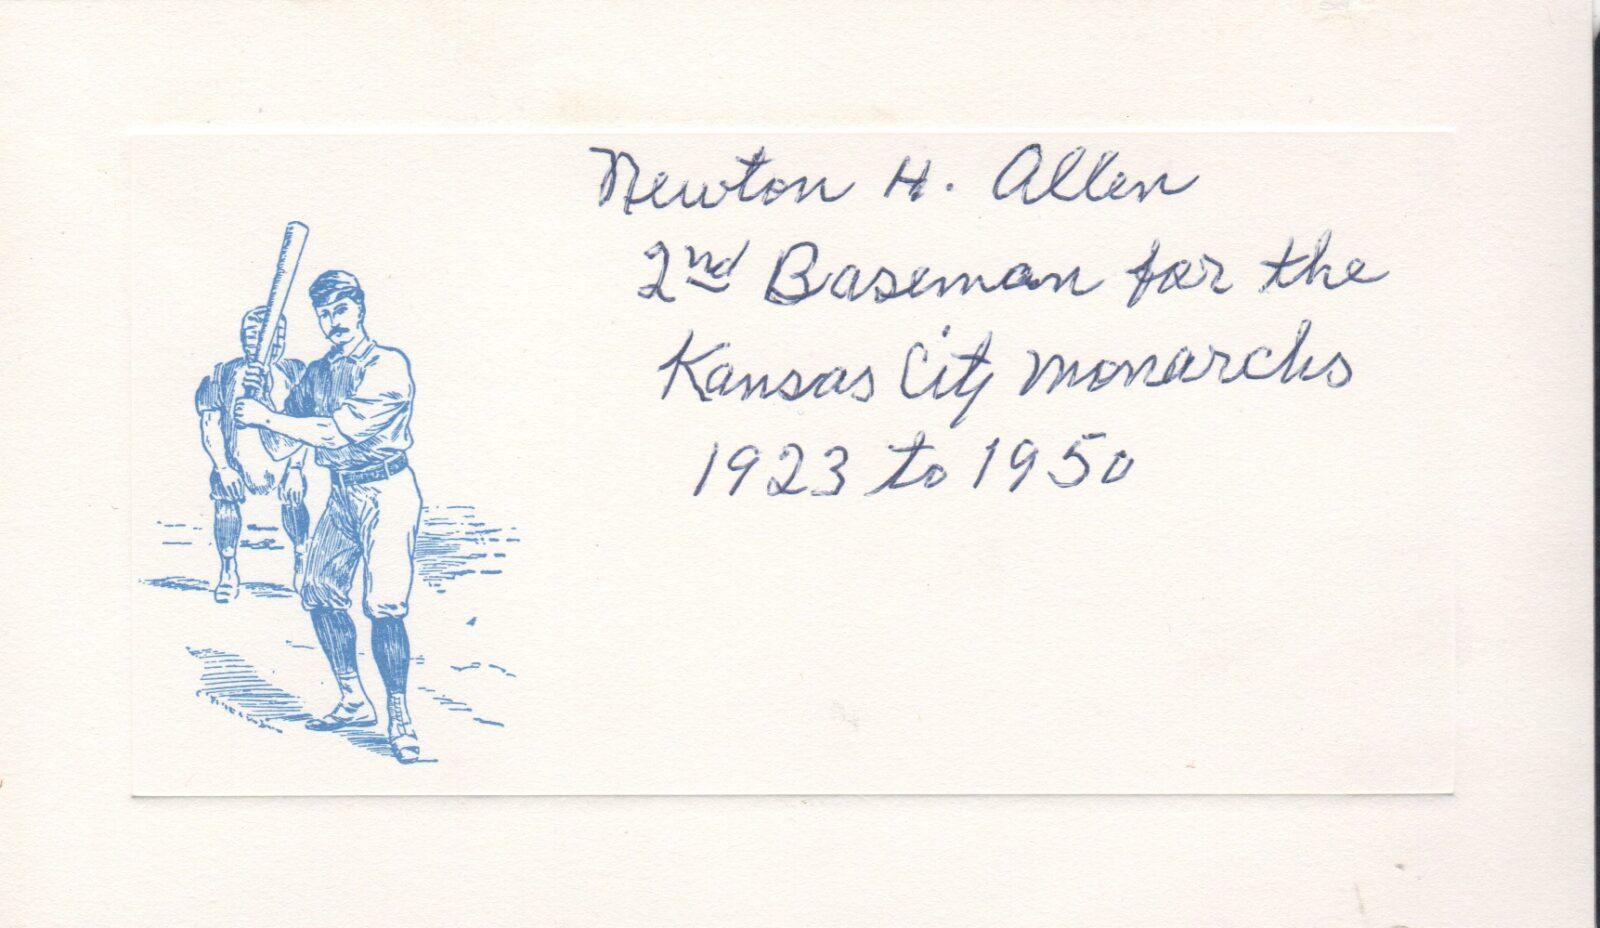 Newton H. Allen
2nd Baseman for the
Kansas City Monarchs
1923 to 1950